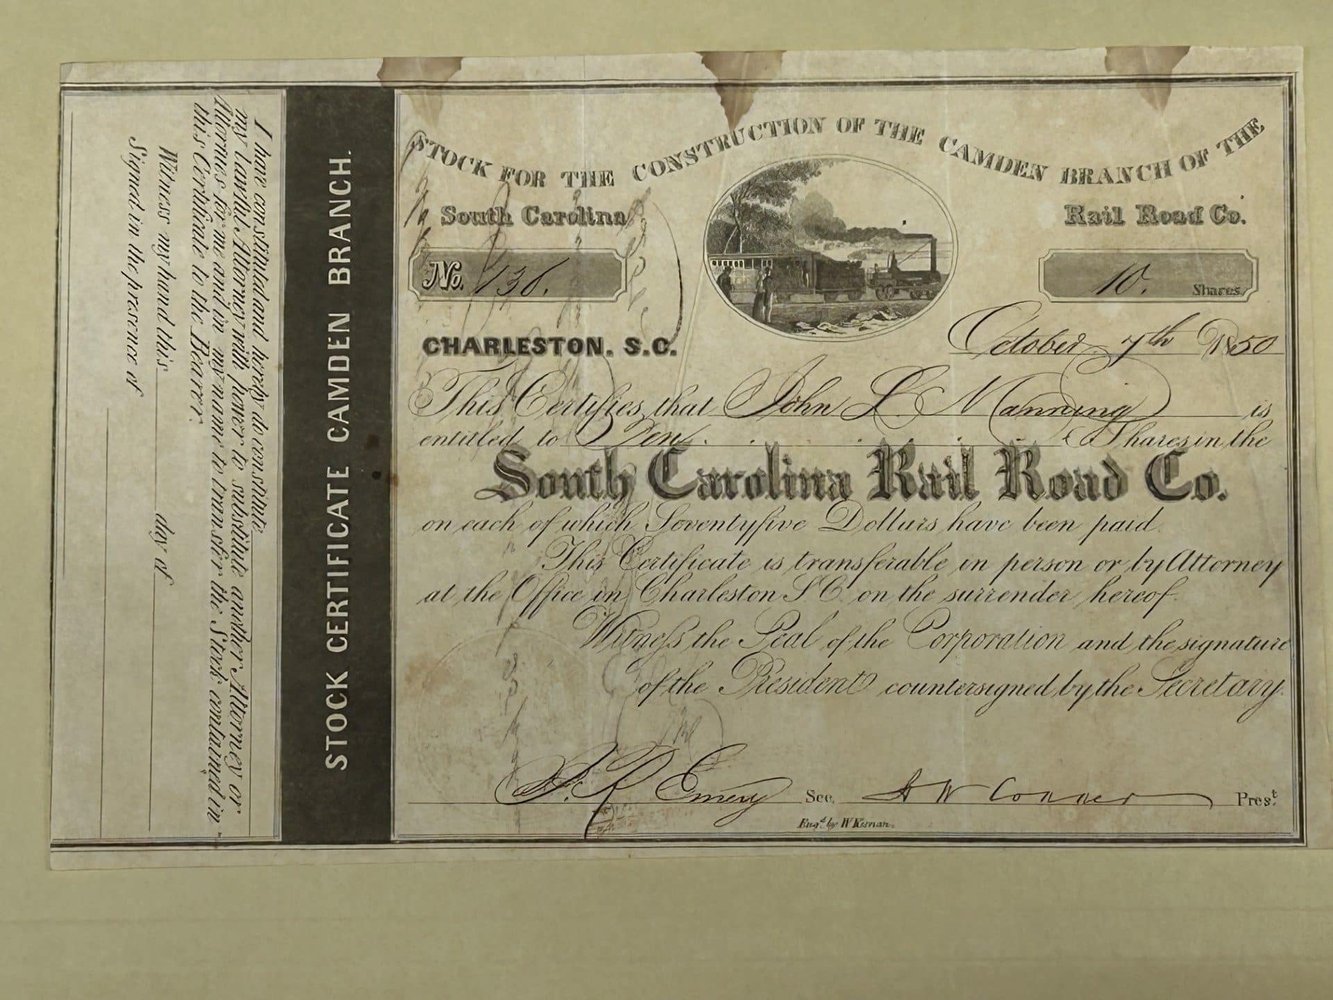 STOCK FOR THE CONSTRUCTION OF THE CAMDEN BRANCH OF THE
South Carolina Rail Road Co.
No. 138. 10. Shares
CHARLESTON. S.C. October 7th 1850
This Certifies that John L. Manning is
entitled to Ten Shares in the
South Carolina Rail Road Co.
on each of which Seventyfive Dollars have been paid.
This Certificate is transferable in person or by Attorney
at the Office in Charleston S.C. on the surrender hereof.
Witness the Seal of the Corporation and the signature
of the President countersigned by the Secretary.
J. R. Emery Sec. H W Conner Prest.
Engd. by W Keenan.
STOCK CERTIFICATE CAMDEN BRANCH.
I have constituted and hereby do constitute
my Lawful Attorney with power to substitute another Attorney or
Attornies for me and in my name to transfer the Stock contained in
this Certificate to the Bearer.
Witness my hand this day of
Signed in the presence of